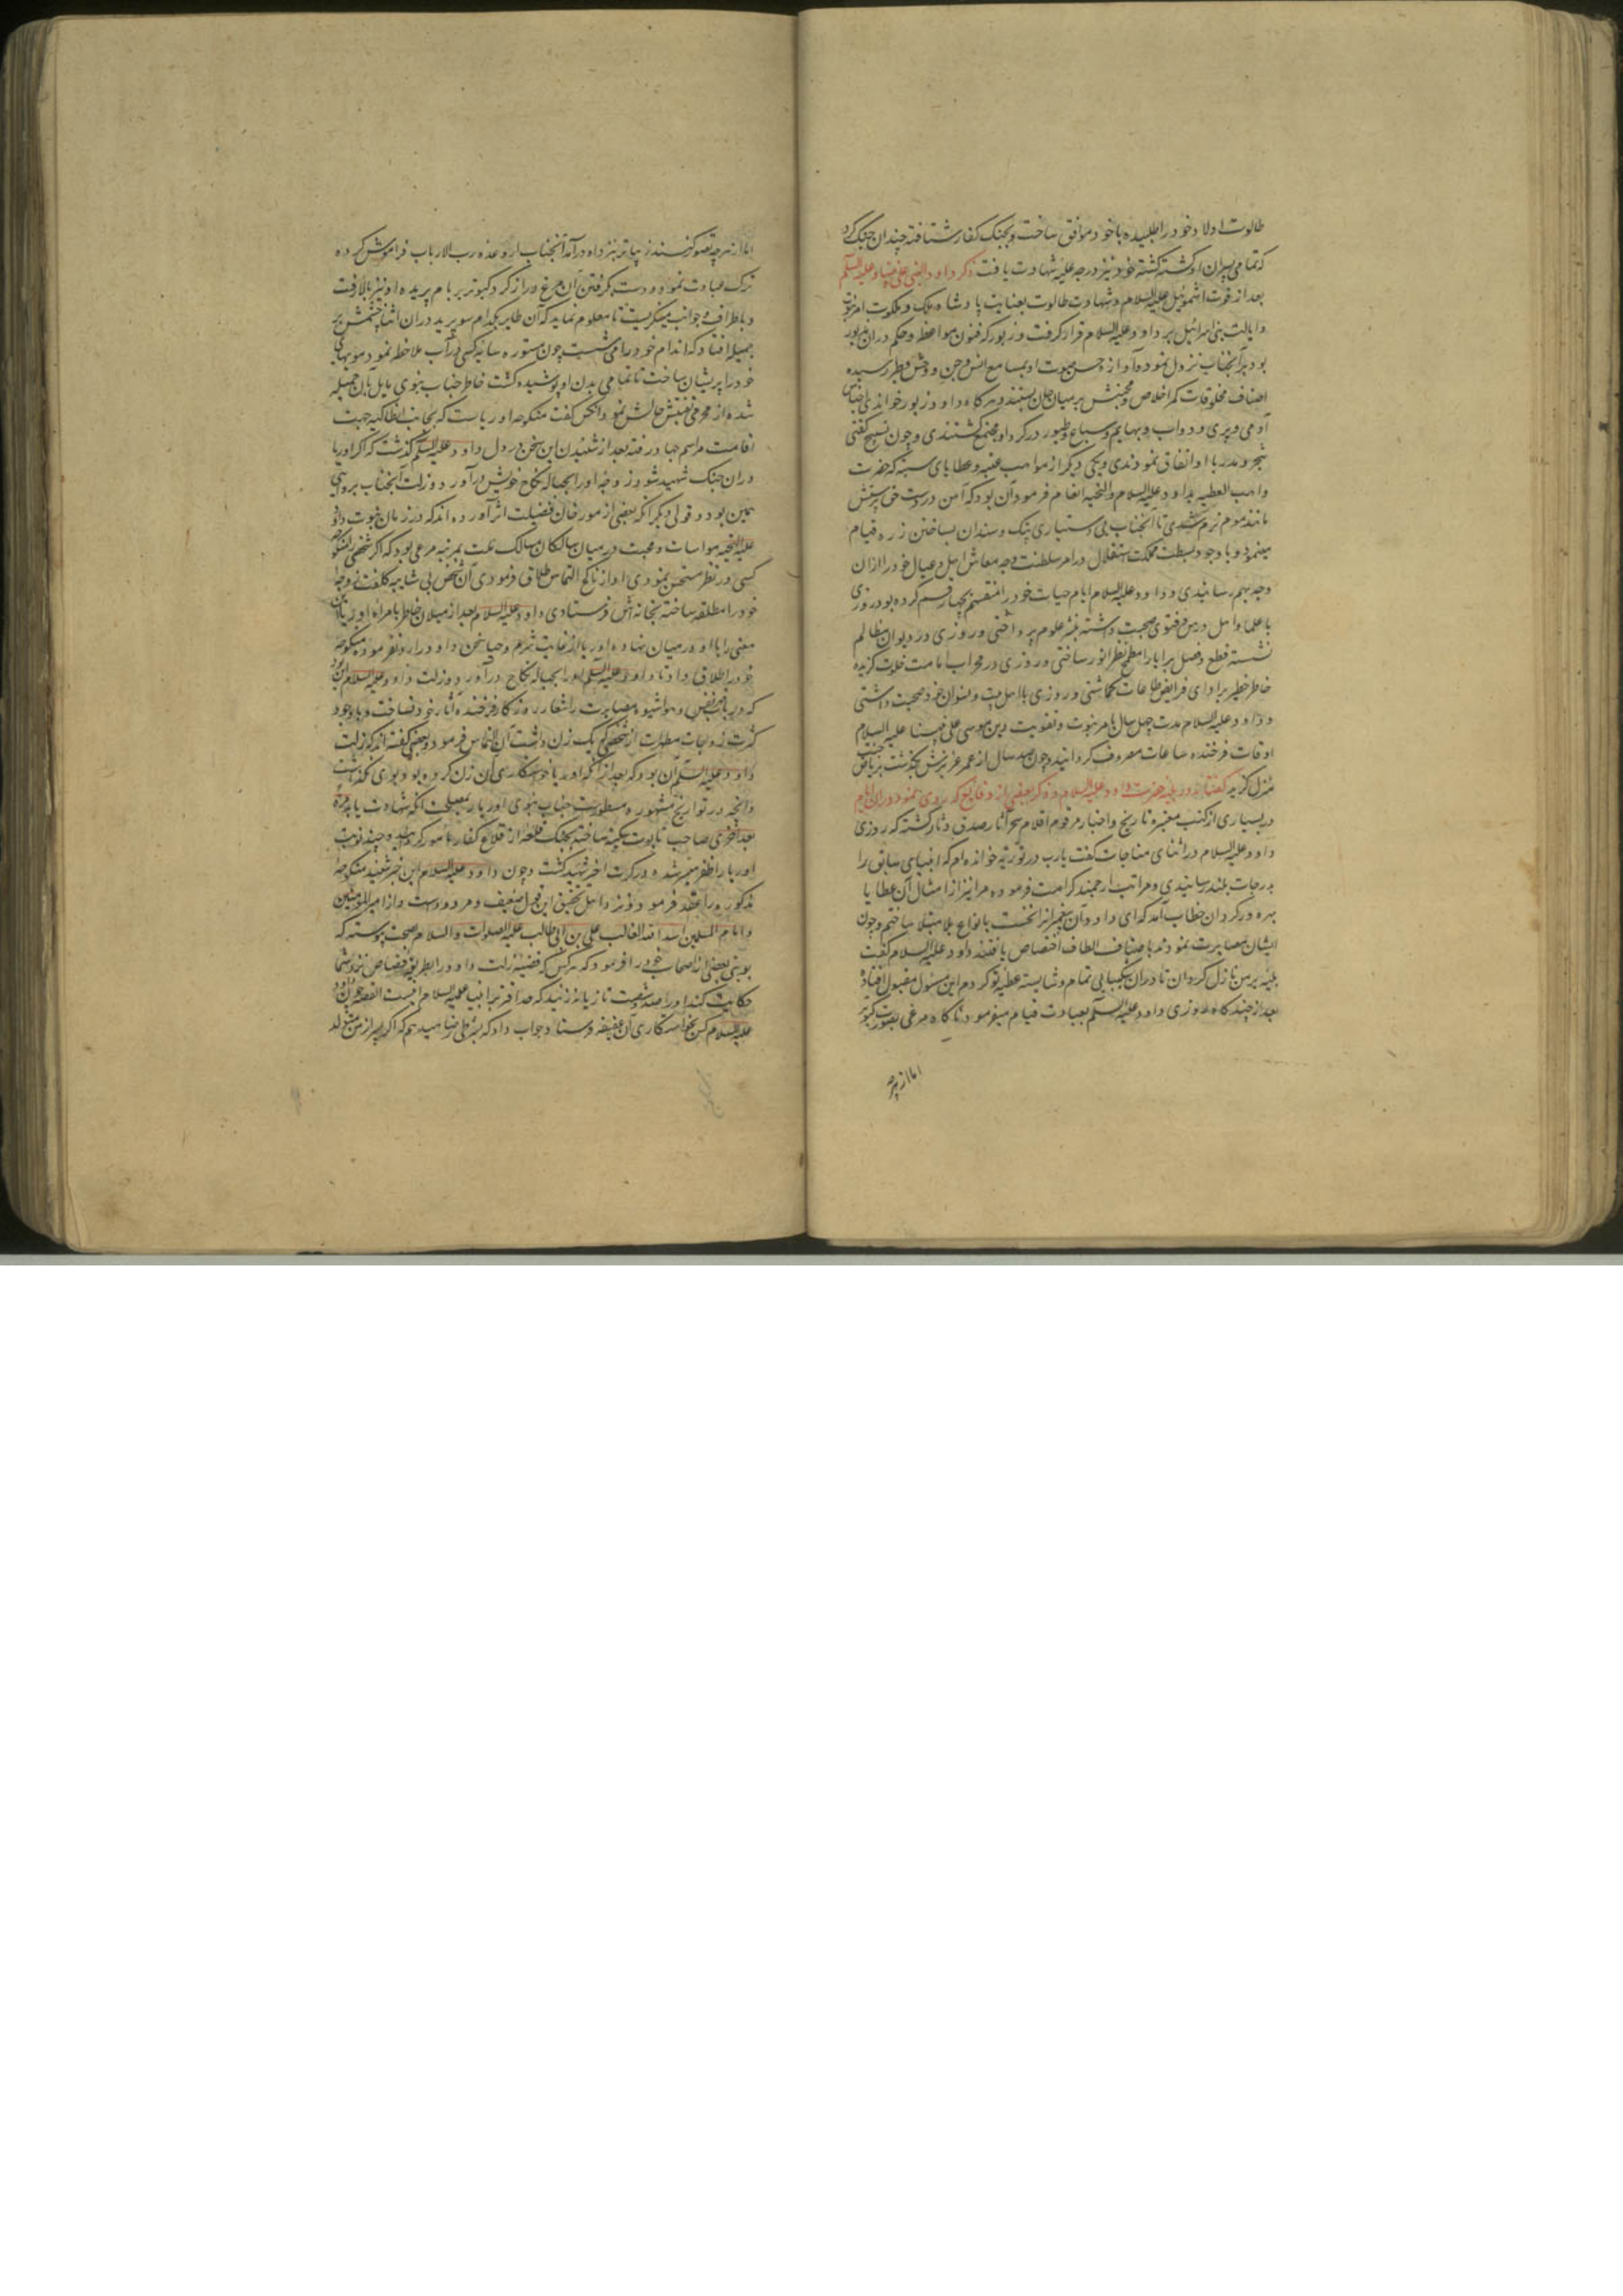 طالوت اولاد خود را طلبیده با خود موافق ساخت و بجنک کفار شتافته چندان جنک کرد
که تمامی پسران او کشته کشته خود نیز درجه علیه شهادت یافت ذکر داود النبی علی نبینا و علیه السلم
بعد از فوت اشموئیل علیه السلام و شهادت طالوت بعنایت پادشاه ملک و ملکوت امر نبوت
و ایالت بنی اسرائیل بر داود علیه السلام قرار کرفت و زبور که فنون مواعظ و حکم دران مزبور
بود بر آنجناب نزول نمود و آواز حسن صوت او بمسامع انس و جن و وحش و طیر رسیده
اصناف مخلوقات کمر اخلاص و محبتش بر میان جان بستند و هرکاه داود زبور خواندی اجناس
آدمی و پری و دواب و بهایم و سباع و طیور در کرد او مجتمع کشتندی و چون تسبیح کفتی
شجر و مدر با او اتفاق نمودندی و یکی دیکر از مواهب عنیه و عطایای سنیه که حضرت
واهب العطیه بداود علیه السلام والتحیه انعام فرمود آن بود که آهن در دست حق پرستش
مانند موم نرم شدی تا آنجناب بی دستیاری پتک و سندان بساختن زره قیام
مینمود و با وجود بسطت مملکت و استقلال در امر سلطنت وجه معاش اهل و عیال خود را ازان
وجه بهم رسانیدی و داود علیه السلام ایام حیات خود را منقسم بچهار قسم کرده بود روزی
با علما و اهل درس و فتوی صحبت داشته بنشر علوم پرداختی و روزی در دیوان مظالم
نشسته قطع و فصل برایا را مطمح نظر انور ساختی و روزی در محراب امامت خلوت کزیده
خاطر خطیر بر ادای فرایض طاعات کماشتی و روزی با اهل بیت و نسوان خود صحبت داشتی
و داود علیه السلام مدت چهل سال بامر نبوت و تقویت دین موسی علی نبینا علیه السلام
اوقات فرخنده ساعات مصروف کردانید و چون صد سال از عمر عزیزش بکذشت بریاض جنت
منزل کزید کفتار در بلیه حضرت داود علیه السلام و ذکر بعضی از وقایع که روی نمود دران ایام
در بسیاری از کتب معتبره تاریخ و اخبار مرقوم اقلام سحر آثار صدق دثار کشته که روزی
داود علیه السلام در اثنای مناجات کفت یارب در توریة خوانده‌ام که انبیای سابق را
بدرجات بلند رسانیدی و مراتب ارجمند کرامت فرموده مرا نیز از امثال آن عطایا
بهره ور کردان خطاب آمد که ای داود آن پیغمبرانرا نخست بانواع بلا مبتلا ساختم و چون
ایشان مصابرت نمودند باصناف الطاف اختصاص یافتند داود علیه السلام کفت
بلیه بر من نازل کردان تا دران شکیبایی تمام و شایسته عطیه تو کردم این مسئول مقبول افتاده
بعد از چندکاه روزی داود علیه السلم بعبادت قیام میفرمود ناکاه مرغی بصورت کبوتر
اما از هرچه
اما از هرچه تصور کنند زیباتر نزد او درآمد آنجناب از وعده رب الارباب فراموش کرده
ترک عبادت نمود و دست بکرفتن آن مرغ دراز کرد کبوتر بر بام پریده او نیز بالا رفت
و باطراف و جوانب مینکریست تا معلوم نماید که آن طایر بکدام سو پرید دران اثنا چشمش بر
جمیله افتاد که اندام خود را می شست چون مستوره سایه کسی در آب ملاحظه نمود مویهای
خود را پریشان ساخت تا تمامی بدن او پوشیده کشت خاطر جناب نبوی مایل بان جمیله
شده از محرمی تفتیش حالش نمود آنکس کفت منکوحه اوریاست که بجانب انطاکیه جهت
اقامت مراسم جهاد رفته بعد از شنیدن این سخن در دل داود علیه السلم کذشت که اکر اوریا
دران جنک شهید شود زوجه او را بحباله نکاح خویش درآورد و زلت آنجناب بروایتی
همین بود و قول دیکر آنکه بعضی از مورخان فضیلت اثر آورده‌اند که در زمان نبوت داود
علیه التحیه مواسات و محبت در میان سالکان مسالک ملت بمرتبه مرعی بود که اکر شخصی را منکوحه
کسی در نظر مستحسن نمودی او از ناکح التماس طلاق فرمودی آن شخص بی شایبه کلفت زوجه
خود را مطلقه ساخته بخانه اش فرستادی داود علیه السلام بعد از میلان خاطر بامراة اوریا این
معنی را با او در میان نهاده اوریا از غایت شرم و حیا سخن داود را رد نفرموده منکوحه
خود را طلاق داد تا داود علیه السلم او را بحباله نکاح درآورد و زلت داود علیه السلام این بود
که در باب نفس و هوا شیوه مصابرت را شعار روزکار فرخنده آثار خود نساخت و با وجود
کثرت زوجات مطهرات از شخصی که یک زن داشت آن التماس فرمود و بعضی کفته اند که زلت
داود علیه السلم آن بود که بعد از آنکه اوریا خواستکاری آن زن کرده بود بوی نکذاشت
و آنچه در تواریخ مشهوره مسطورست جناب نبوی اوریا را بمصلحت آنکه شهادت یابد مرة
بعد اخری صاحب تابوت سکینه ساخته بجنک قلعه از قلاع کفار مامور کردانید و چند نوبت
اوریا را ظفر میسر شده در کرت اخیر شهید کشت و چون داود علیه السلام این خبر شنید منکوحه
مذکوره را عقد فرمود و نزد اهل تحقیق این قول ضعیف و مردودست و از امیر المومنین
و امام المسلمین اسد الله الغالب علی بن ابی طالب علیه الصلوات والسلام بصحت پیوسته که
نوبتی بعضی از اصحاب خود را فرمود که هرکس که قضیه زلت داود را بطریق قصاص نزد شما
حکایت کند او را صد و شصت تازیانه زنید که حد افترا بر انبیا علیه السلام اینست القصه چون داود
علیه السلام کس بخواستکاری آن عفیفه فرستاد جواب داد که بشرطی رضا میدهم که اکر پسر از من متولد